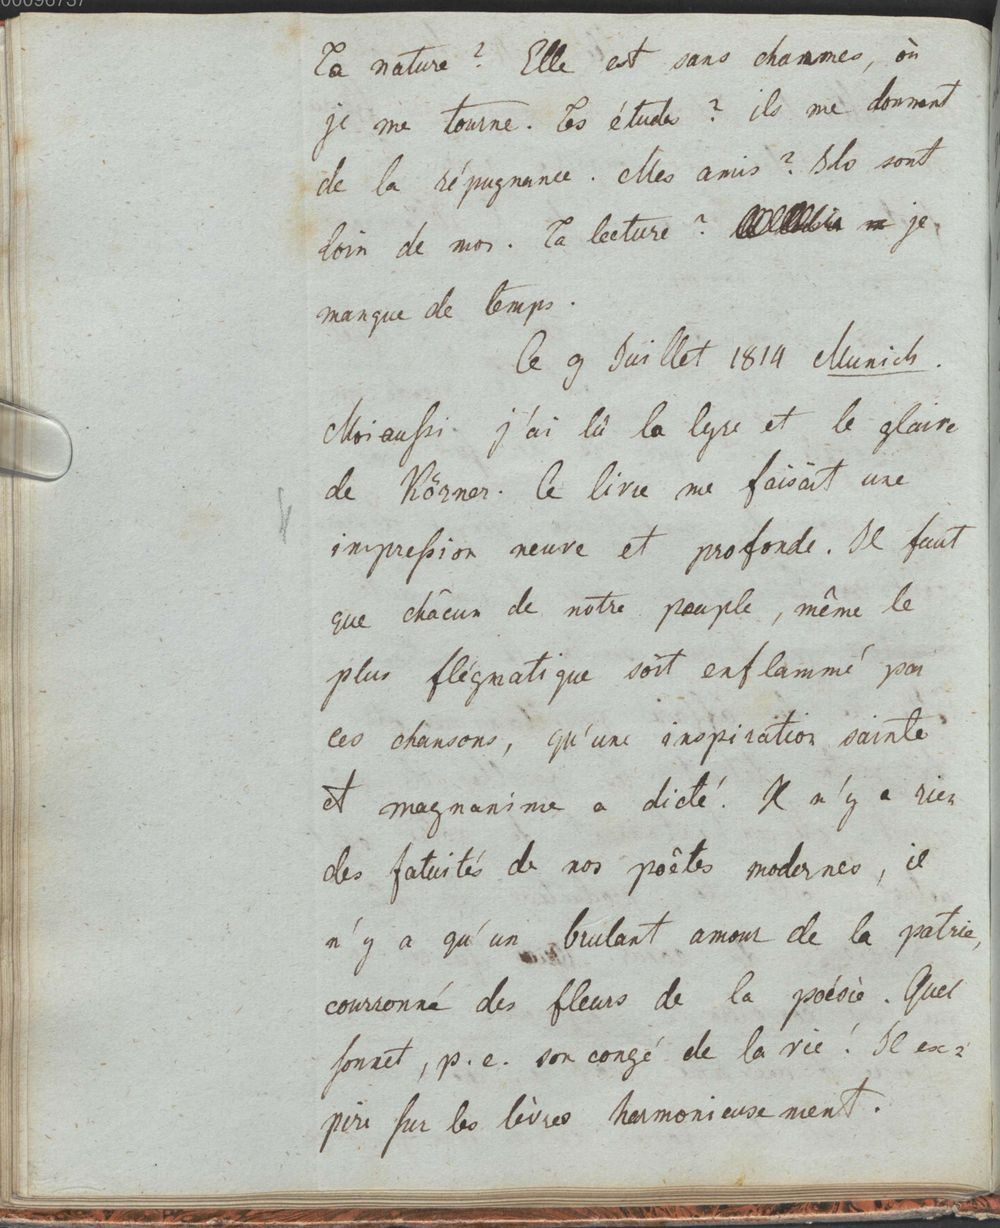 00096737
La nature? Elle est sans chammes, où
je me tourne. Les études? ils me donnent
de la répugnance. Mes amis? Ils sont
loin de moi. La lecture? je
manque de temps.
le 9 Juillet 1814 Munich.
Moi aussi j'ai lû la lyre et le glaive
de Körner. Ce livre me faisait une
impression neuve et profonde. Il faut
que châcun de notre peuple, même le
plus flégmatique soit enflammé par
ces chansons, qu'une inspiration sainte
et magnanime a dicté. Il n'y a rien
des fatuités de nos poêtes modernes, il
n'y a qu'un brulant amour de la patrie,
couronné des fleurs de la poésie. Quel
sonnet, p. e. son congé de la vie! Il ex=
pire sur les lèvres harmonieusement.